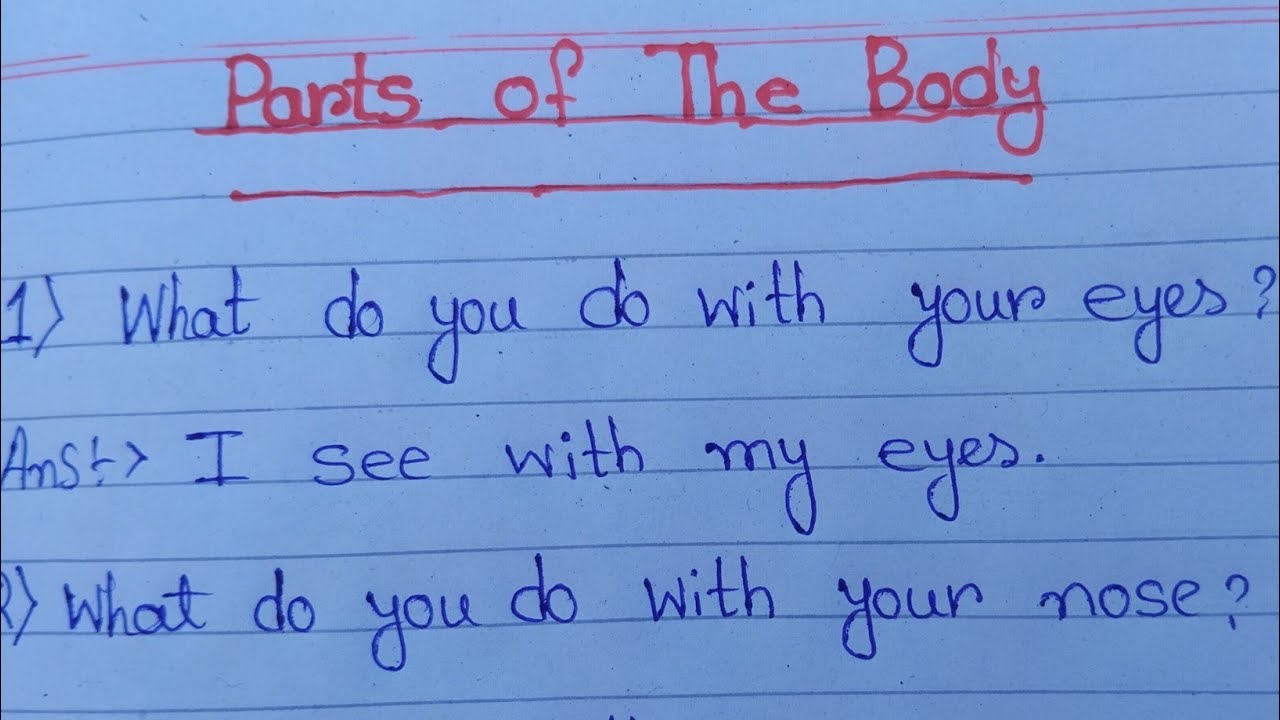 Parts of The Body
1) What do you do with your eyes?
Ans:-> I see with my eyes.
2) What do you do with your nose?